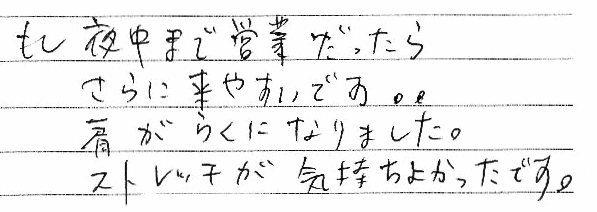 もし夜中まで営業だったら
さらに来やすいです。。
肩がらくになりました。
ストレッチが気持ちよかったです。